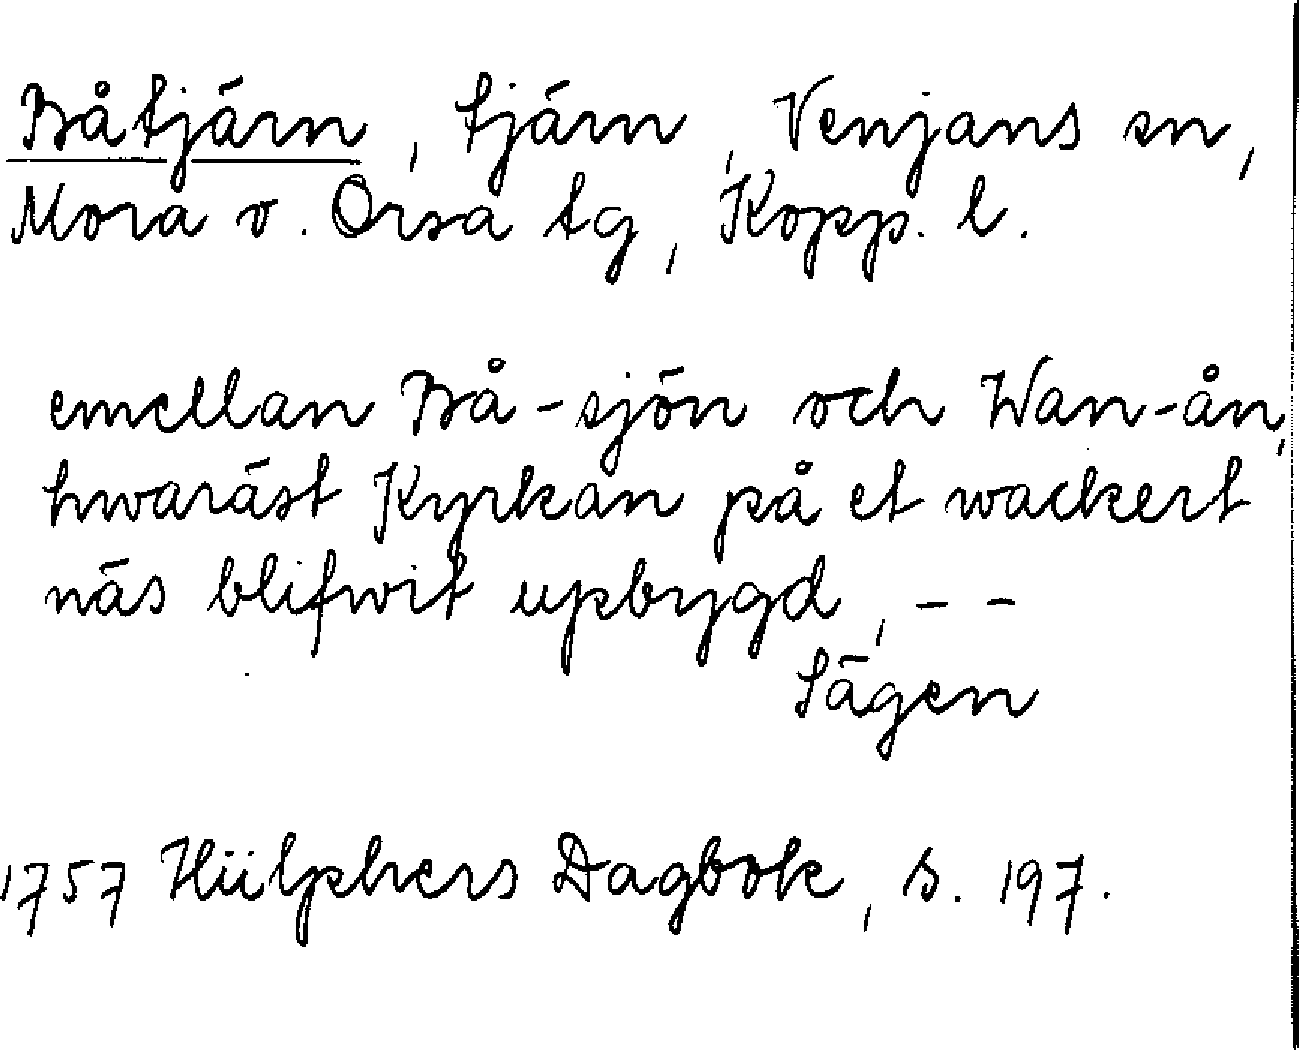 Båtjärn, tjärn, Venjans sn,
Mora o. Orsa tg, Kopp. l.
emellan Bå-sjön och Wan-ån,
hwaräst Kyrkan på et wackert
näs blifwit upbygd, - -
Sägen
1757 Hülphers Dagbok, s. 197.